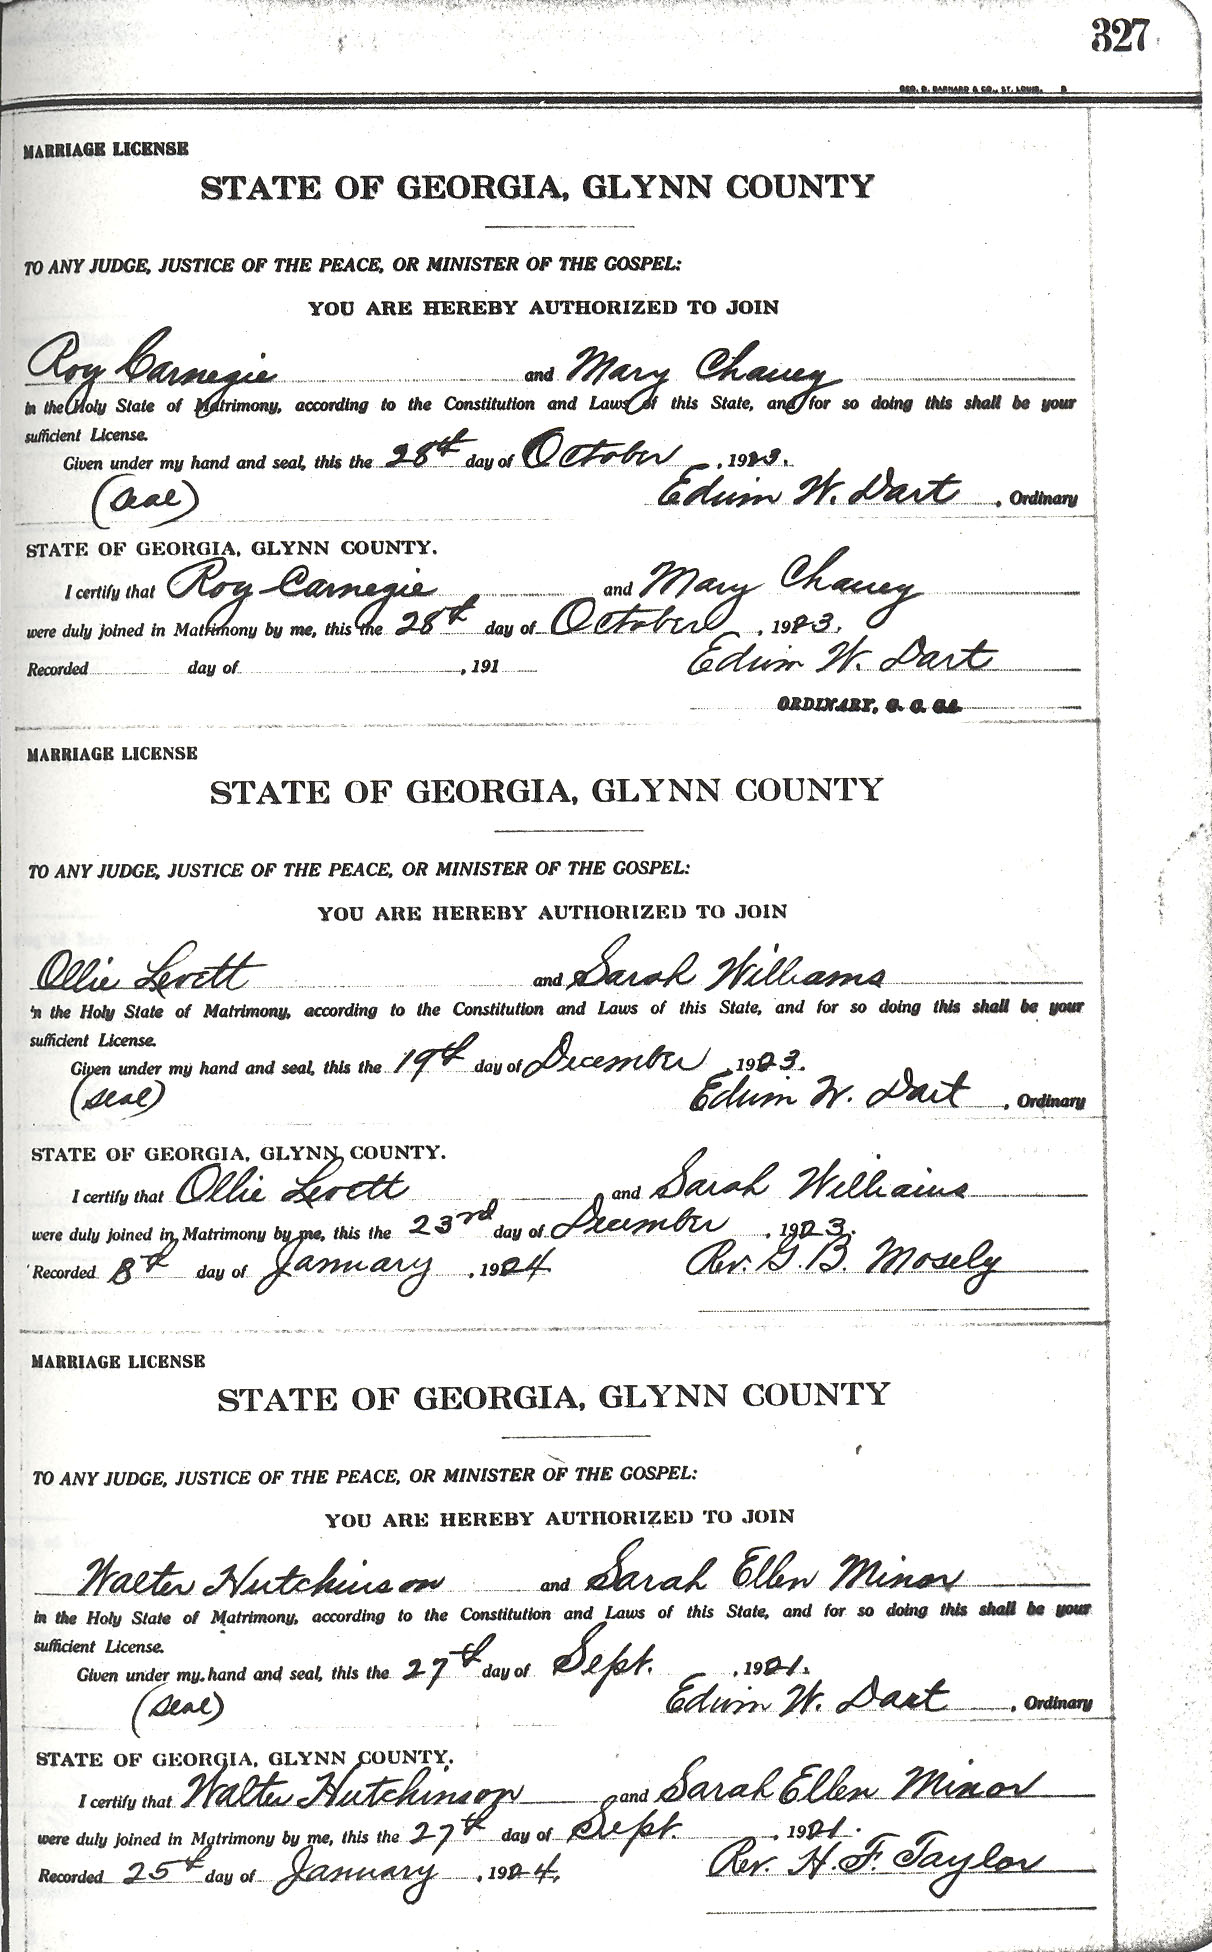 327
GEO. D. BARNARD & CO., ST. LOUIS. B
MARRIAGE LICENSE
STATE OF GEORGIA, GLYNN COUNTY
TO ANY JUDGE, JUSTICE OF THE PEACE, OR MINISTER OF THE GOSPEL:
YOU ARE HEREBY AUTHORIZED TO JOIN
Roy Carnegie and Mary Chaney
in the Holy State of Matrimony, according to the Constitution and Laws of this State, and for so doing this shall be your
sufficient License.
Given under my hand and seal, this the 28th day of October, 1923.
(seal) Edwin W. Dart, Ordinary
STATE OF GEORGIA, GLYNN COUNTY.
I certify that Roy Carnegie and Mary Chaney
were duly joined in Matrimony by me, this the 28th day of October, 1923.
Recorded day of , 191 Edwin W. Dart
ORDINARY, G. C. GA.
MARRIAGE LICENSE
STATE OF GEORGIA, GLYNN COUNTY
TO ANY JUDGE, JUSTICE OF THE PEACE, OR MINISTER OF THE GOSPEL:
YOU ARE HEREBY AUTHORIZED TO JOIN
Ollie Levett and Sarah Williams
in the Holy State of Matrimony, according to the Constitution and Laws of this State, and for so doing this shall be your
sufficient License.
Given under my hand and seal, this the 19th day of December, 1923.
(seal) Edwin W. Dart, Ordinary
STATE OF GEORGIA, GLYNN COUNTY.
I certify that Ollie Levett and Sarah Williams
were duly joined in Matrimony by me, this the 23rd day of December, 1923.
Recorded 8th day of January, 1924 Rev. G. B. Mosely
MARRIAGE LICENSE
STATE OF GEORGIA, GLYNN COUNTY
TO ANY JUDGE, JUSTICE OF THE PEACE, OR MINISTER OF THE GOSPEL:
YOU ARE HEREBY AUTHORIZED TO JOIN
Walter Hutchinson and Sarah Ellen Minor
in the Holy State of Matrimony, according to the Constitution and Laws of this State, and for so doing this shall be your
sufficient License.
Given under my hand and seal, this the 27th day of Sept., 1921.
(seal) Edwin W. Dart, Ordinary
STATE OF GEORGIA, GLYNN COUNTY.
I certify that Walter Hutchinson and Sarah Ellen Minor
were duly joined in Matrimony by me, this the 27th day of Sept., 1921.
Recorded 25th day of January, 1924. Rev. H. F. Taylor